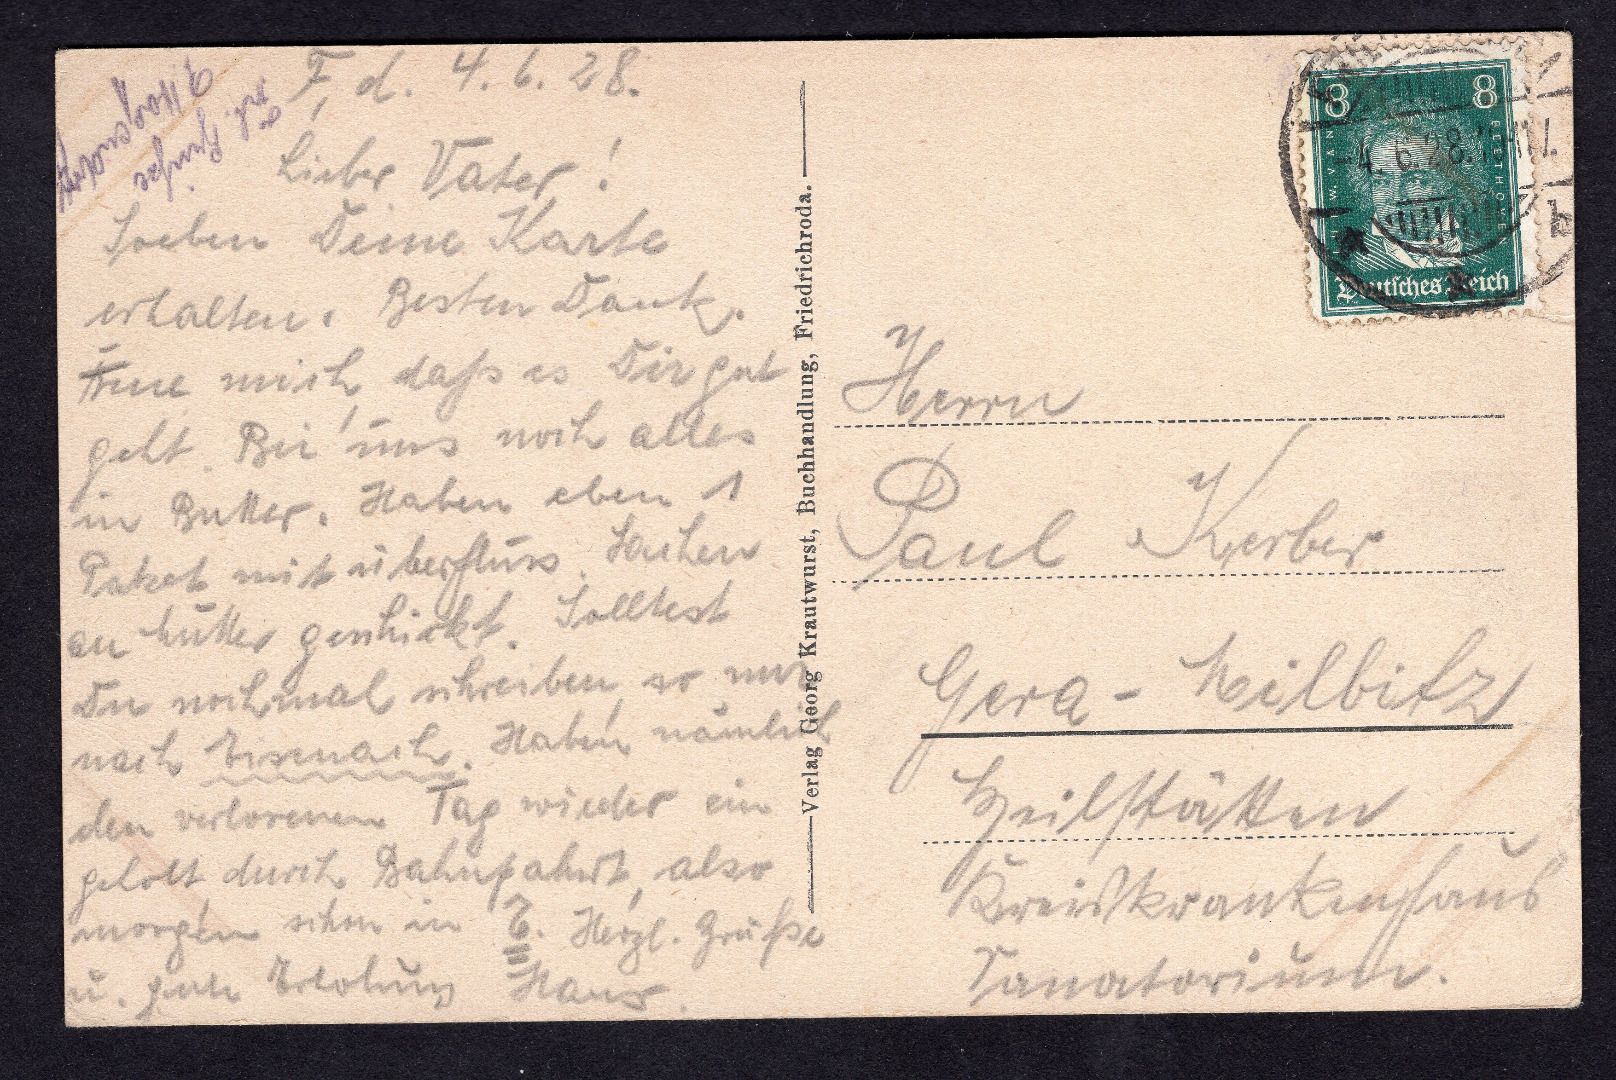 F, d. 4. 6. 28.
Lieber Vater!
Soeben Deine Karte
erhalten. Besten Dank.
Freue mich daß es Dir gut
geht. Bei uns noch alles
in Butter. Haben eben 1
Paket mit überflüss. Sachen
an Mutter geschickt. Solltest
Du nochmal schreiben so nur
nach Eisenach. Haben nämlich
den verlorenen Tag wieder ein
geholt durch Bahnfahrt, also
morgen schon in E. Herzl. Grüße
u. gute Erholung Hans.
Verlag Georg Krautwurst, Buchhandlung, Friedrichroda.
8 8
Deutsches Reich
-4. 6. 28.
b
Herrn
Paul Kerber
Gera-Milbitz
Heilstätten
Kreiskrankenhaus
Sanatorium.